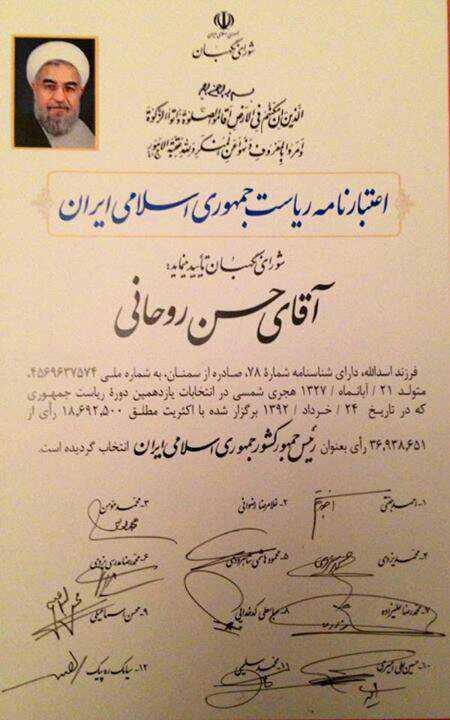 جمهوری اسلامی ایران
شورای نگهبان
الَّذینَ اِن مَکَّنّاهُم فِی الاَرضِ اَقامُوا الصَّلوةَ وَ آتَوُا الزَّکوةَ
وَ اَمَروا بِالمَعروفِ وَ نَهَوا عَنِ المُنکَرِ وَ لِلّهِ عاقِبَةُ الاُمورِ
اعتبارنامه ریاست جمهوری اسلامی ایران
شورای نگهبان تأیید می‌نماید:
آقای حسن روحانی
فرزند اسدالله، دارای شناسنامه شمارهٔ ۷۸، صادره از سمنان، به شماره ملی ۴۵۶۹۶۳۷۵۷۴،
متولد ۲۱ / آبانماه / ۱۳۲۷ هجری شمسی در انتخابات یازدهمین دورهٔ ریاست جمهوری
که در تاریخ ۲۴ / خرداد / ۱۳۹۲ برگزار شده با اکثریت مطلق ۱۸,۶۹۲,۵۰۰ رأی از
۳۶,۹۳۸,۶۵۱ رأی بعنوان رئیس جمهور کشور جمهوری اسلامی ایران انتخاب گردیده است.
۱- احمد جنتی ۲- غلامرضا رضوانی ۳- محمد مؤمن
۴- محمد یزدی ۵- محمود هاشمی شاهرودی ۶- محمدرضا مدرسی یزدی
۷- محمدرضا علیزاده ۸- عباسعلی کدخدایی ۹- محسن اسماعیلی
۱۰- حسین‌علی امیری ۱۱- محمد سلیمی ۱۲- سیامک ره‌پیک